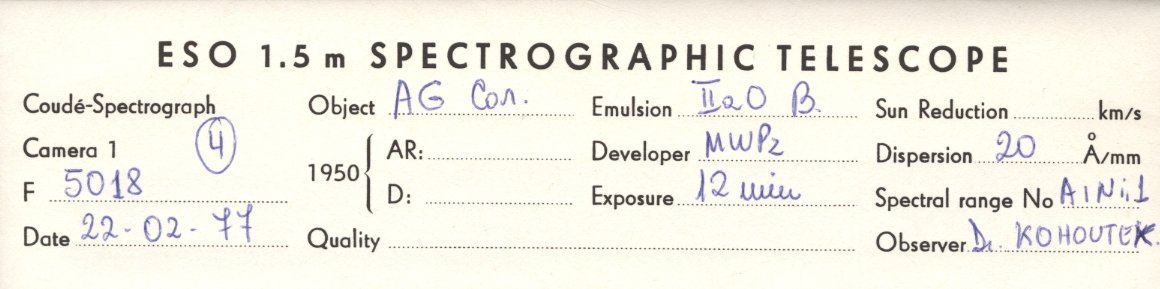 ESO 1.5 m SPECTROGRAPHIC TELESCOPE
Coudé-Spectrograph
Camera 1 4
F 5018
Date 22-02-77
Object AG Car.
1950 { AR:
D:
Quality
Emulsion IIaO B.
Developer MWP2
Exposure 12 min
Sun Reduction km/s
Dispersion 20 Å/mm
Spectral range No A1Ni1
Observer Dr. KOHOUTEK